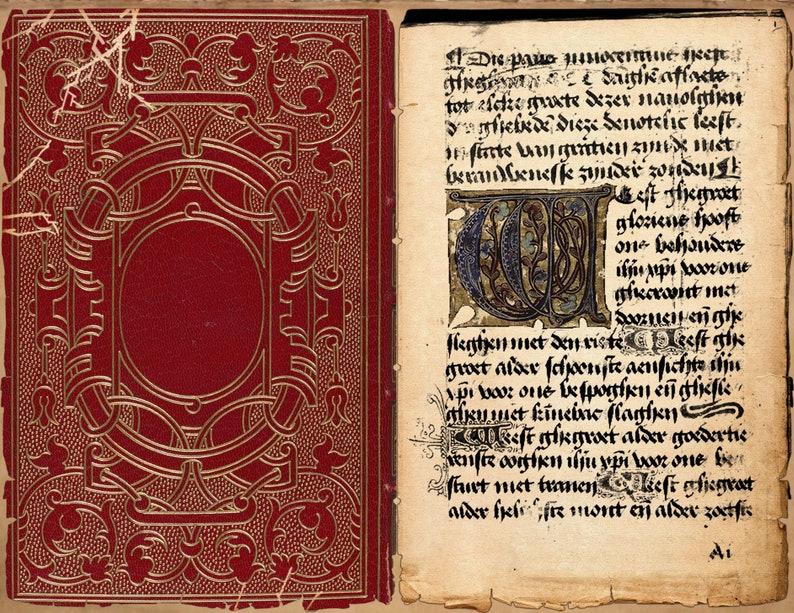 ¶ Die paus innocentius heeft
ghegheven daghe aflaets
tot elcke groete dezer navolghen
d ghebedē dieze devotelic leest
in state van gratien zijnde met
berauwenesse zijnder zonden ¶
Weest ghegroet
glorieus hooft
ons behouders
ihū xp̄i voor ons
ghecroont met
doornen eñ ghe
sleghen met den riete Weest ghe
groet alder schoonste aensichte ihū
xp̄i voor ons bespoghen eñ ghesle
ghen met kīnebac slaghen
Weest ghegroet alder goedertie
renste ooghen ihū xp̄i voor ons be
sturt met tranen Weest ghegroet
alder heli ste mont eñ alder zoetste
Ai